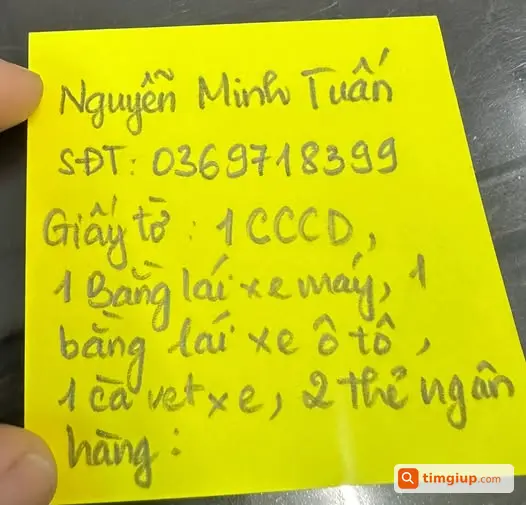 Nguyễn Minh Tuấn
SĐT: 0369718399
Giấy tờ: 1 CCCD,
1 Bằng lái xe máy, 1
bằng lái xe ô tô,
1 cà vet xe, 2 thẻ ngân
hàng:
timgiup.com